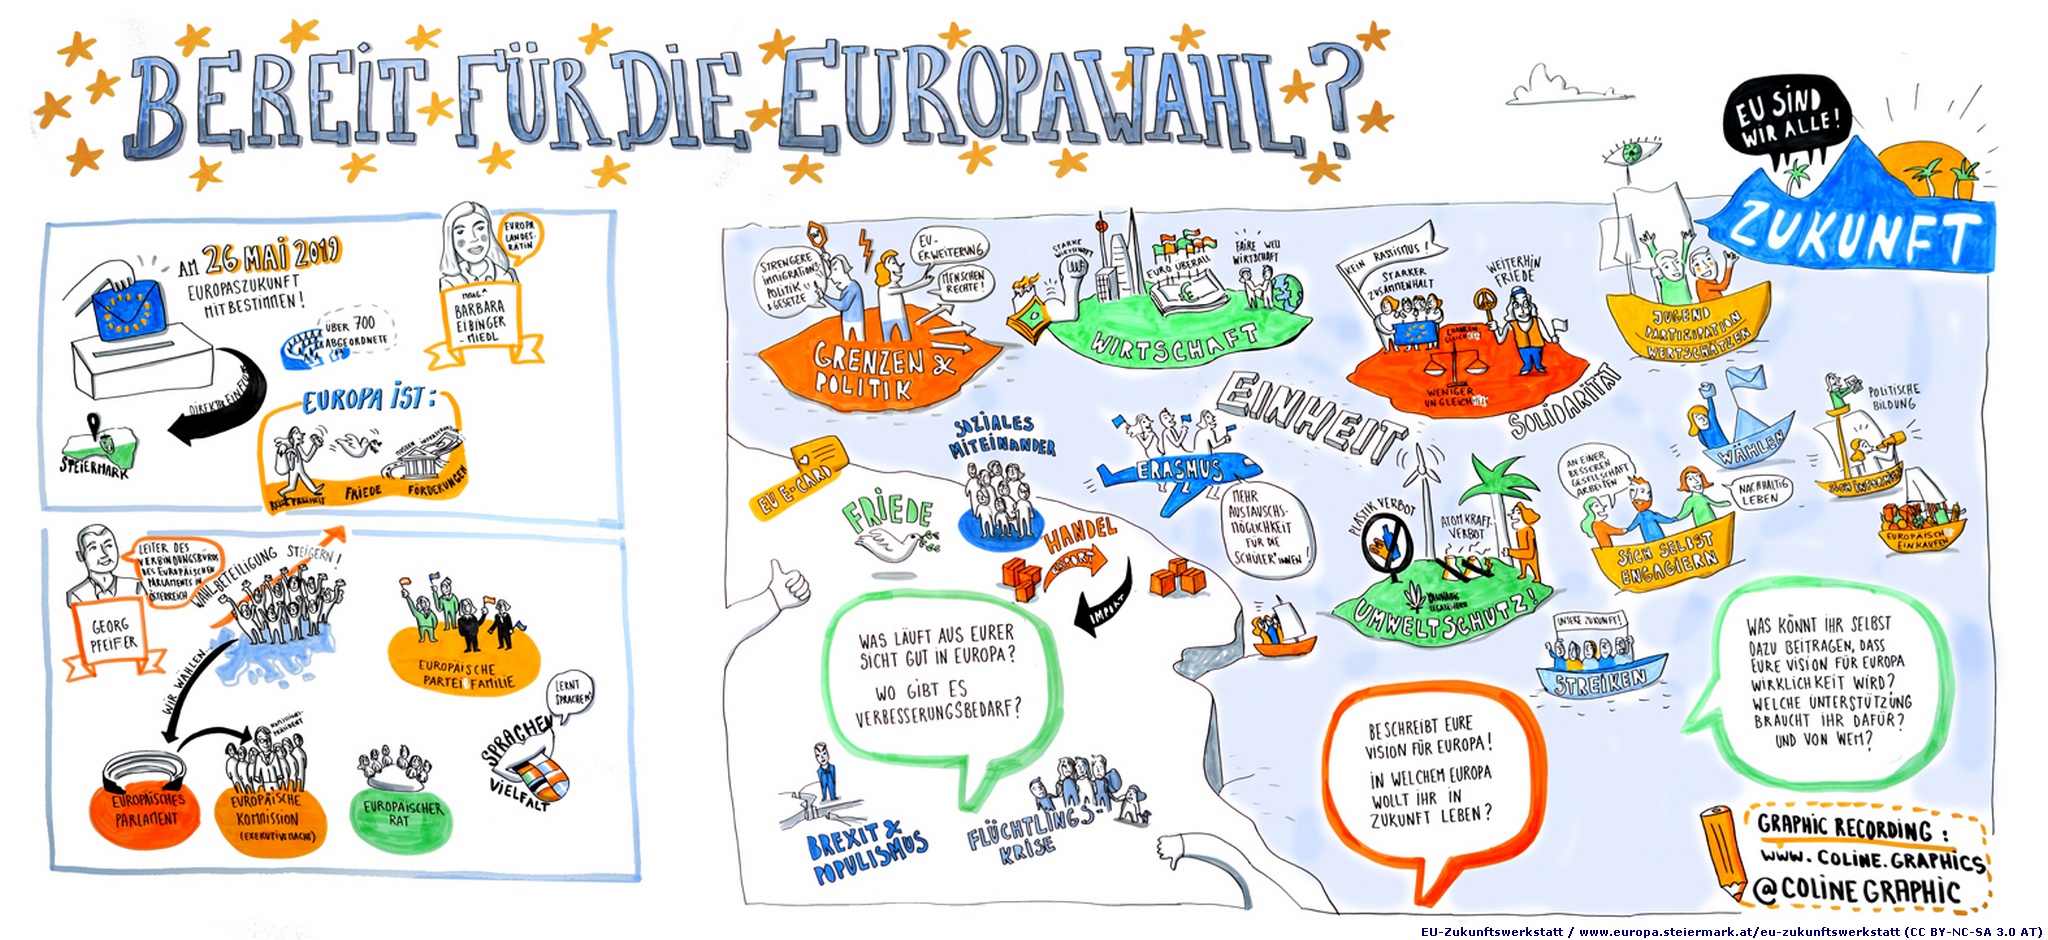 BEREIT FÜR DIE EUROPAWAHL?
AM 26 MAI 2019
EUROPASZUKUNFT
MITBESTIMMEN!
ÜBER 700
ABGEORDNETE
EUROPA
LANDES-
RÄTIN
MAG.A
BARBARA
EIBINGER
-MIEDL
DIREKTER EINFLUSS
STEIERMARK
EUROPA IST:
REISEFREIHEIT
FRIEDE
FÖRDERUNGEN
GEORG
PFEIFER
LEITER DES
VERBINDUNGSBÜROS
DES EUROPÄISCHEN
PARLAMENTS IN
ÖSTERREICH
WAHLBETEILIGUNG STEIGERN!
WIR WÄHLEN...
EUROPÄISCHE
PARTEIFAMILIE
EUROPÄISCHES
PARLAMENT
EUROPÄISCHE
KOMMISSION
(EXEKUTIVMACHT)
EUROPÄISCHER
RAT
SPRACHEN
VIELFALT
LERNT
SPRACHEN!
STRENGERE
IMMIGRATIONS
POLITIK U.
GESETZE
EU-
ERWEITERUNG
MENSCHEN
RECHTE!
GRENZEN &
POLITIK
STARKE
WIRTSCHAFT
EURO ÜBERALL
FAIRE WELT
WIRTSCHAFT
WIRTSCHAFT
KEIN RASSISMUS!
STARKER
ZUSAMMENHALT
WEITERHIN
FRIEDE
CHANCEN
GLEICHHEIT
WENIGER
UNGLEICHHEIT
SOLIDARITÄT
EINHEIT
EU SIND
WIR ALLE!
ZUKUNFT
JUGEND
PARTIZIPATION
WERTSCHÄTZEN
WÄHLEN
POLITISCHE
BILDUNG
SICH INFORMIEREN
EUROPÄISCH
EINKAUFEN
AN EINER
BESSEREN
GESELLSCHAFT
ARBEITEN
NACHHALTIG
LEBEN
SICH SELBST
ENGAGIERN
UNSERE ZUKUNFT!
STREIKEN
EU E-CARD
SOZIALES
MITEINANDER
FRIEDE
ERASMUS
MEHR
AUSTAUSCHS-
MÖGLICHKEIT
FÜR DIE
SCHÜLER*INNEN!
HANDEL
EXPORT
IMPORT
PLASTIK VERBOT
ATOMKRAFT-
VERBOT
CANNABIS
LEGALISIEREN
UMWELTSCHUTZ!
WAS LÄUFT AUS EURER
SICHT GUT IN EUROPA?
WO GIBT ES
VERBESSERUNGSBEDARF?
BREXIT &
POPULISMUS
FLÜCHTLINGS-
KRISE
BESCHREIBT EURE
VISION FÜR EUROPA!
IN WELCHEM EUROPA
WOLLT IHR IN
ZUKUNFT LEBEN?
WAS KÖNNT IHR SELBST
DAZU BEITRAGEN, DASS
EURE VISION FÜR EUROPA
WIRKLICHKEIT WIRD?
WELCHE UNTERSTÜTZUNG
BRAUCHT IHR DAFÜR?
UND VON WEM?
GRAPHIC RECORDING:
WWW.COLINE.GRAPHICS
@COLINEGRAPHIC
EU-Zukunftswerkstatt / www.europa.steiermark.at/eu-zukunftswerkstatt (CC BY-NC-SA 3.0 AT)